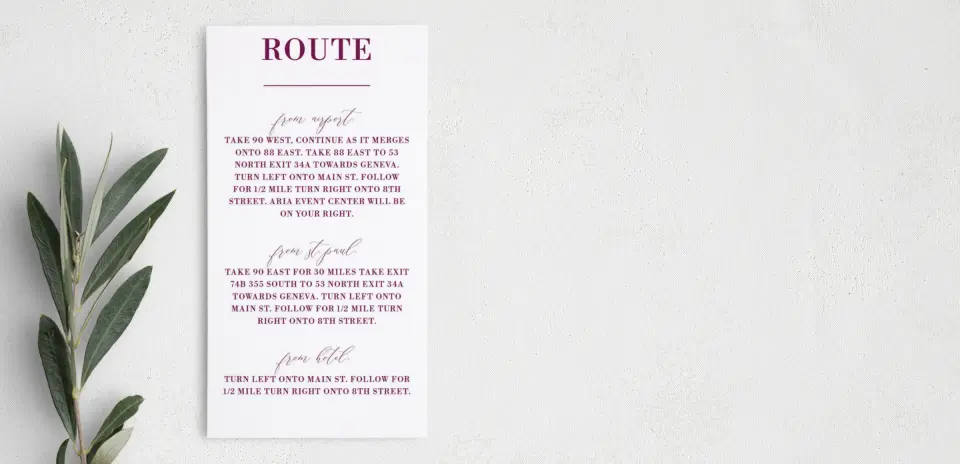 ROUTE
from airport
TAKE 90 WEST, CONTINUE AS IT MERGES
ONTO 88 EAST. TAKE 88 EAST TO 53
NORTH EXIT 34A TOWARDS GENEVA.
TURN LEFT ONTO MAIN ST. FOLLOW
FOR 1/2 MILE TURN RIGHT ONTO 8TH
STREET. ARIA EVENT CENTER WILL BE
ON YOUR RIGHT.
from st paul
TAKE 90 EAST FOR 30 MILES TAKE EXIT
74B 355 SOUTH TO 53 NORTH EXIT 34A
TOWARDS GENEVA. TURN LEFT ONTO
MAIN ST. FOLLOW FOR 1/2 MILE TURN
RIGHT ONTO 8TH STREET.
from hotel
TURN LEFT ONTO MAIN ST. FOLLOW FOR
1/2 MILE TURN RIGHT ONTO 8TH STREET.